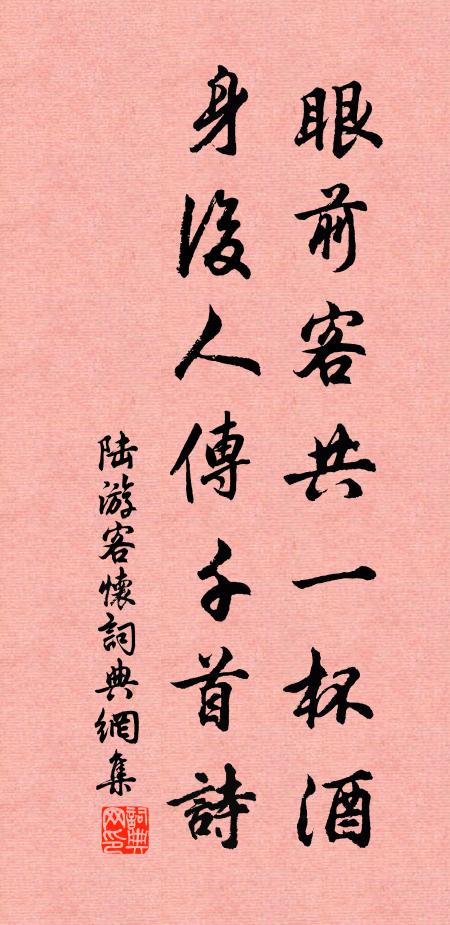 眼前客共一杯酒
身後人傳千首詩
陆游客懷詞典網集
詞典网印